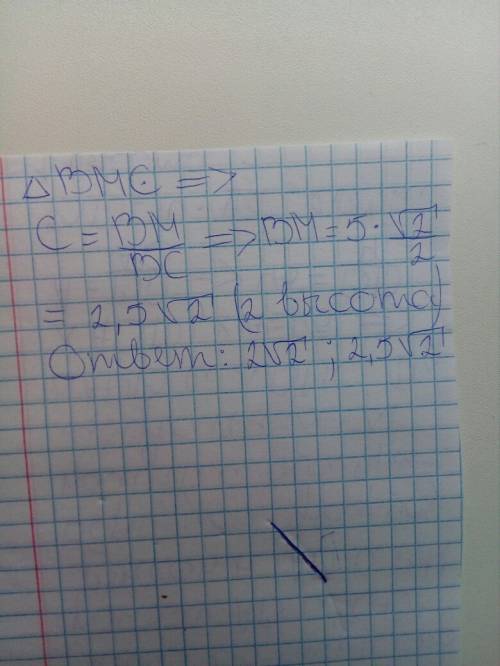 △ BMC =>
C = BM/BC => BM = 5 · √2/2
= 2,5√2 (2 высота)
Ответ: 2√2 ; 2,5√2